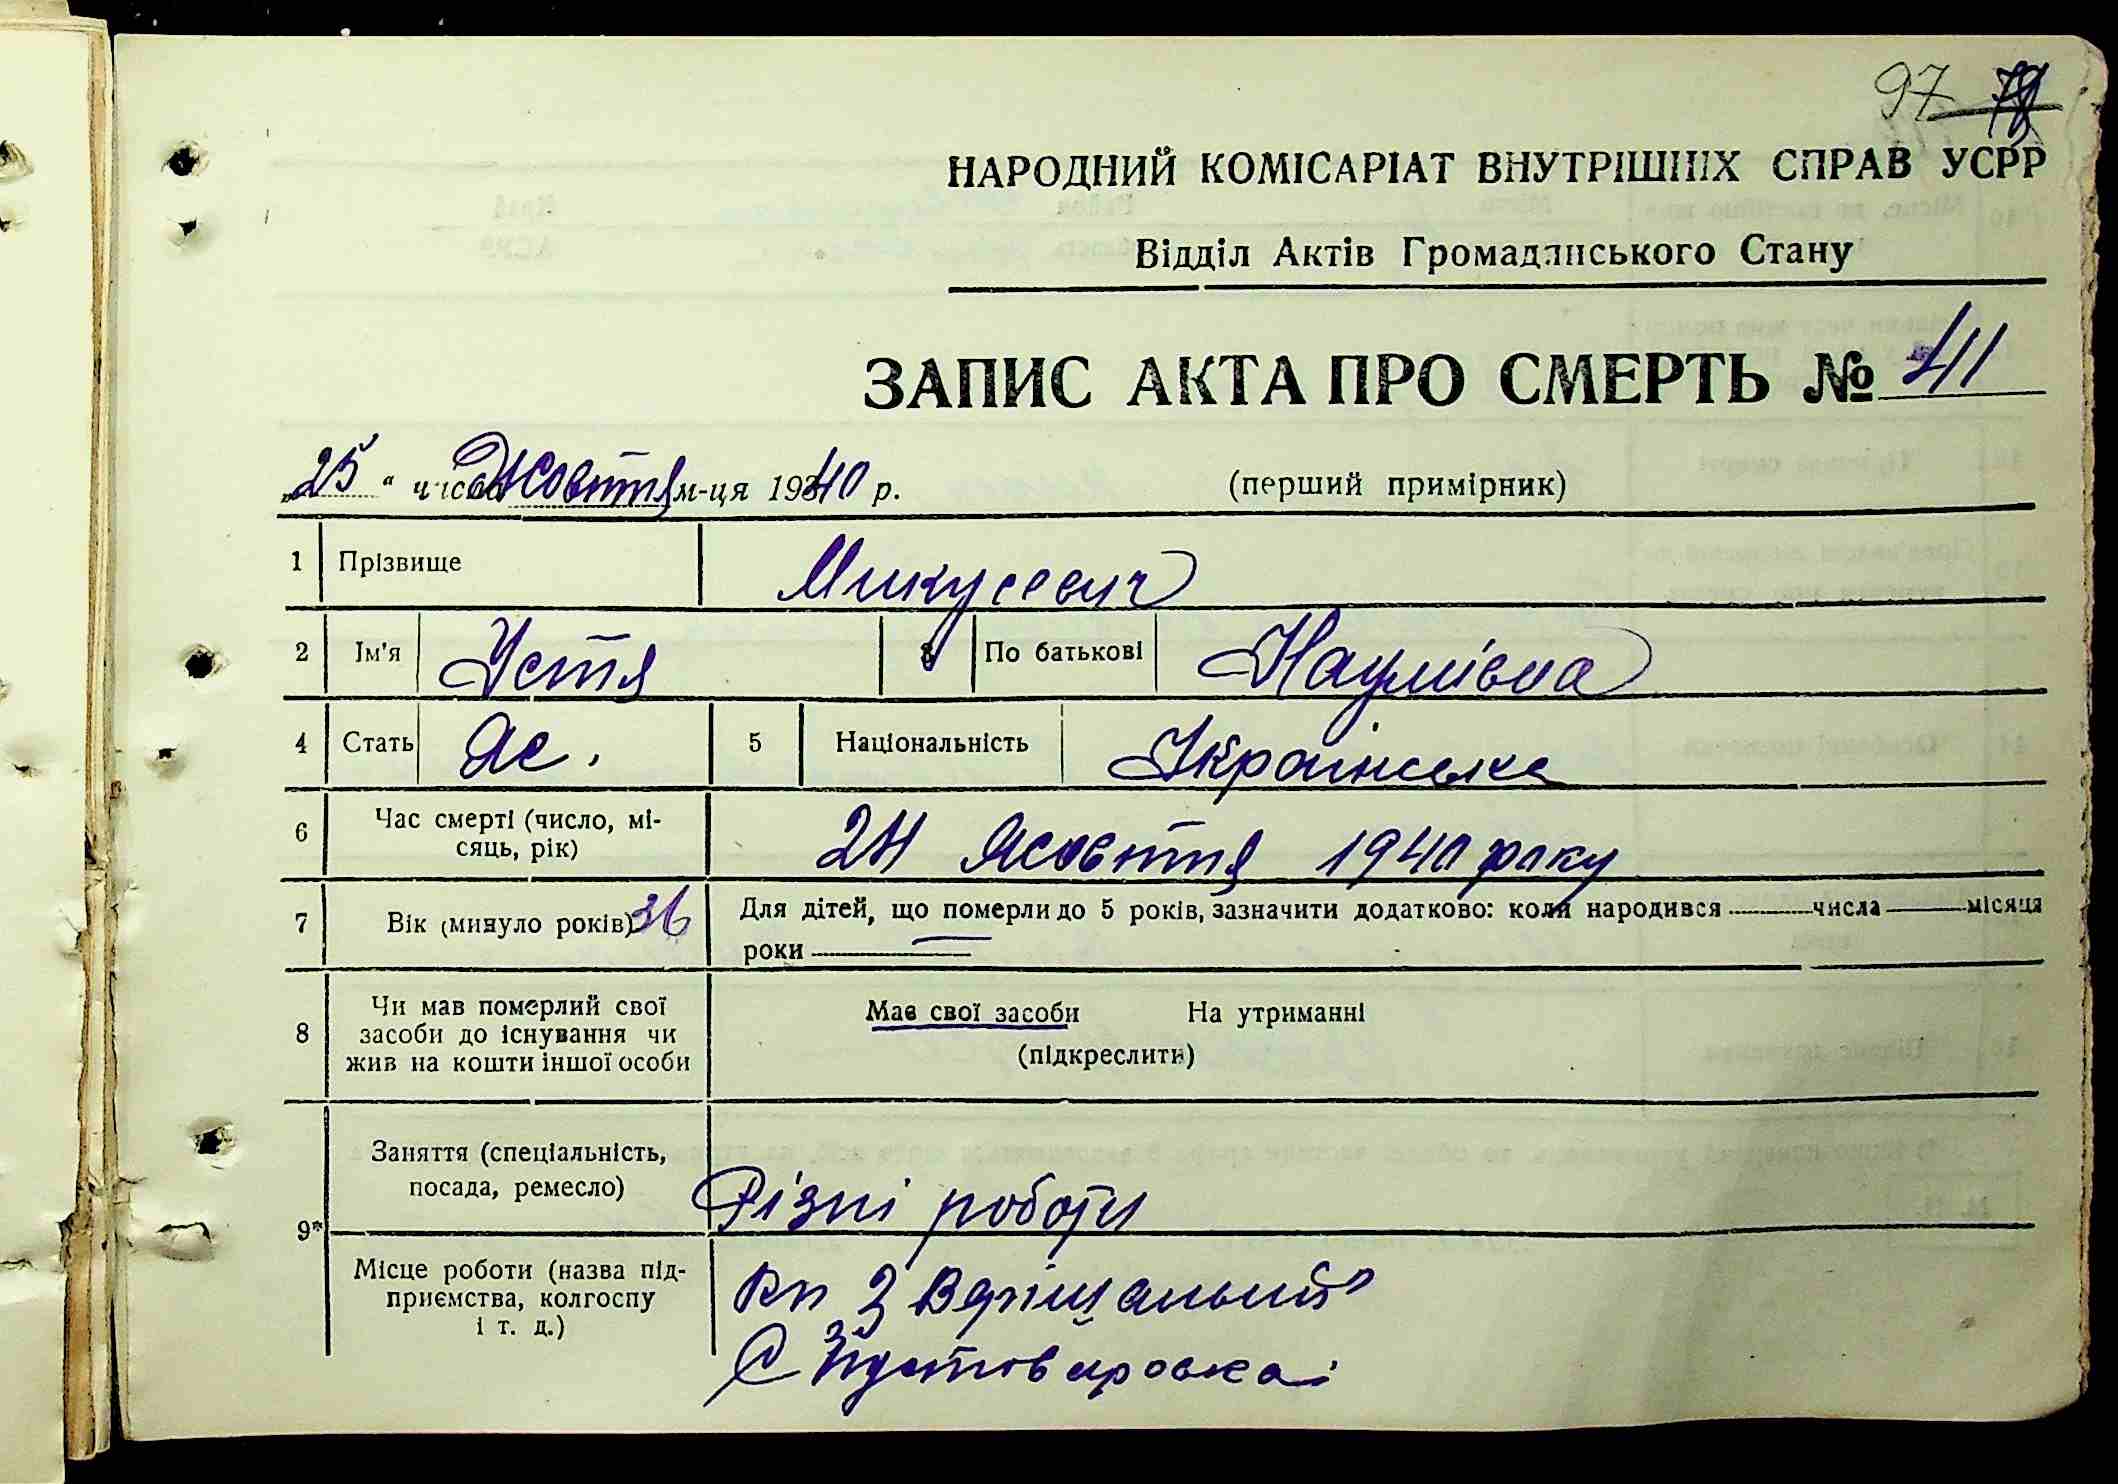 97 78
НАРОДНИЙ КОМІСАРІАТ ВНУТРІШНІХ СПРАВ УСРР
Відділ Актів Громадянського Стану
ЗАПИС АКТА ПРО СМЕРТЬ № 411
„25“ числа Жовтня м-ця 1940 р. (перший примірник)
1 Прізвище Микусевич
2 Ім'я Устя 3 По батькові Наумівна
4 Стать Ж. 5 Національність Українська
6 Час смерті (число, мі-
сяць, рік) 24 Жовтня 1940 року
7 Вік (минуло років) 36 Для дітей, що померли до 5 років, зазначити додатково: коли народився числа місяця
роки
8 Чи мав померлий свої
засоби до існування чи
жив на кошти іншої особи
Має свої засоби На утриманні
(підкреслити)
9* Заняття (спеціальність,
посада, ремесло) Різні роботи
Місце роботи (назва під-
приємства, колгоспу
і т. д.)
кп З Вирішальний
с Пустоваровка